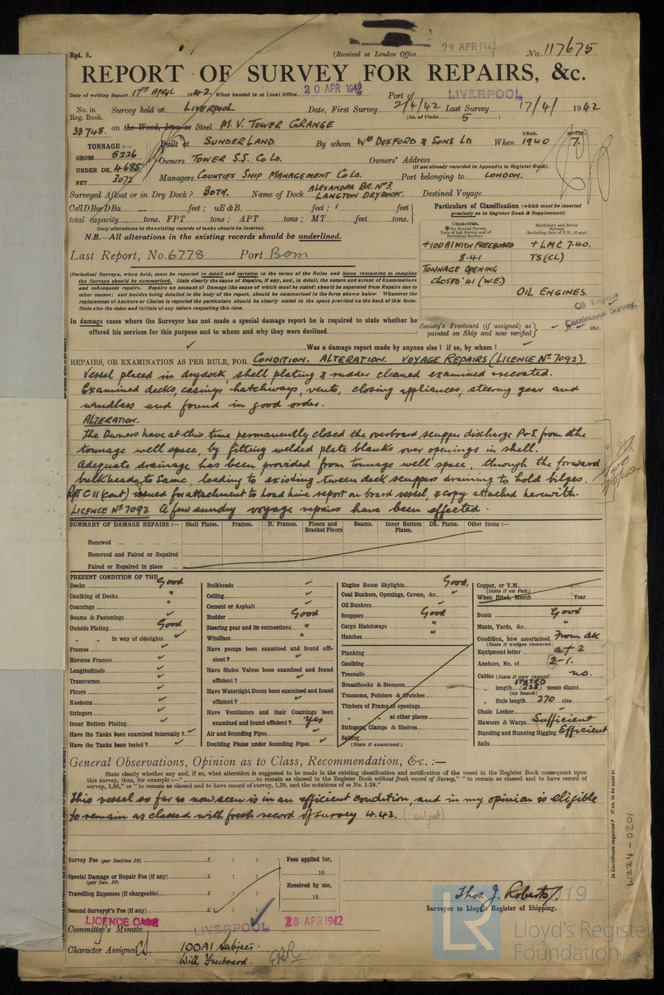 Rpt. 8.
(Received at London Office
29 APR 1942
No. 117675
REPORT OF SURVEY FOR REPAIRS, &c.
Date of writing Report 17th APRIL 1942. When handed in at Local Office 20 APR 1942 Port of LIVERPOOL
No. in Reg. Book. Survey held at LIVERPOOL Date, First Survey 2/4/42 Last Survey 17/4/1942
(No. of Visits 5)
33748. on the Wood, Iron or Steel M.V. TOWER GRANGE
TONNAGE:—
GROSS 5226
UNDER DK. 4685
NET 3072
Built at SUNDERLAND By whom Wm DOXFORD & SONS LD When YEAR. 1940 MONTH 7.
Owners TOWER S.S. Co LD. Owners' Address
(If not already recorded in Appendix to Register Book).
Managers COUNTIES SHIP MANAGEMENT Co LD. Port belonging to LONDON.
Surveyed Afloat or in Dry Dock? BOTH. Name of Dock ALEXANDRA BR. No 3. LANGTON DRYDOCK. Destined Voyage
Cell DB or DBa feet; uE & B feet; f feet
total capacity tons. FPT tons; APT tons; MT feet tons.
Only alterations in the existing records of tanks should be inserted.
N.B.—All alterations in the existing records should be underlined.
Last Report, No. 6778 Port Bom
Particulars of Classification (which must be inserted precisely as in Register Book & Supplements)
+100A1 WITH FREEBOARD
8.41
TONNAGE OPENING
CLOSED '41 (W.E.)
+LMC 7.40.
TS (CL)
OIL ENGINES
(Periodical Surveys, when held, must be reported in detail and seriatim in the terms of the Rules and items remaining to complete the Surveys should be summarised.
In damage cases where the Surveyor has not made a special damage report he is required to state whether he
offered his services for this purpose and to whom and why they were declined
Society's Freeboard (if assigned) as painted on Ship and now verified ft. ins.
Was a damage report made by anyone else? if so, by whom?
REPAIRS, OR EXAMINATION AS PER RULE, FOR CONDITION. ALTERATION. VOYAGE REPAIRS (LICENCE No 7092)
Vessel placed in drydock shell plating & rudder cleaned examined & recoated.
Examined decks, casings hatchways, vents, closing appliances, steering gear and
windlass and found in good order.
ALTERATION.
The Owners have at this time permanently closed the overboard scupper discharge P & S. from the
tonnage well space, by fitting welded plate blanks over openings in shell.
Adequate drainage has been provided from tonnage well space, through the forward
bulkheads to same, leading to existing tween deck scuppers draining to hold bilges.
Rpt C 11 (cont) issued for attachment to load line report on board vessel, & copy attached herewith.
LICENCE No 7092 A few sundry voyage repairs have been effected.
SUMMARY OF DAMAGE REPAIRS:— Shell Plates. Frames. R. Frames. Floors and Bracket Floors Beams. Inner Bottom Plates. Dk. Plates. Other Items:—
Renewed
Removed and Faired or Repaired
Faired or Repaired in place
PRESENT CONDITION OF THE
Decks Good
Caulking of Decks "
Coamings "
Beams & Fastenings
Outside Plating Good
" " in way of sidelights
Frames
Reverse Frames
Longitudinals
Transverses
Floors
Keelsons
Stringers
Inner Bottom Plating
Have the Tanks been examined internally?
Have the Tanks been tested?
Bulkheads
Ceiling
Cement or Asphalt
Rudder Good
Steering gear and its connections "
Windlass "
Have pumps been examined and found efficient?
Have Sluice Valves been examined and found efficient?
Have Watertight Doors been examined and found efficient?
Have Ventilators and their Coamings been examined and found efficient? Yes
Air and Sounding Pipes
Doubling Plates under Sounding Pipes
Engine Room Skylights Good,
Coal Bunkers, Openings, Covers, &c.
Oil Bunkers
Scuppers Good
Cargo Hatchways "
Hatches "
Planking
Caulking
Treenails
Breasthooks & Stemson
Transoms, Pointers & Crutches
Timbers of Frame at openings
" " at other places
Stringers, Clamps & Shelves
Salting
(State if examined.)
Copper, or Y.M.
(State if on Felt.)
When fitted, Month Year
Boats Good
Masts, Yards, &c. "
Condition, how ascertained From dk
(State if wedges removed)
Equipment letter
Anchors, No. of 2-1.
Cables (State if now ranged) no.
" length mean diamr.
(on board)
" Rule length 270 size
Chain Locker
Hawsers & Warps Sufficient
Standing and Running Rigging Efficient
Sails
General Observations, Opinion as to Class, Recommendation, &c.:—
State clearly whether any, and if so, what alteration is suggested to be made in the existing classification and notation of the vessel in the Register Book consequent upon
This vessel so far as now seen is in an efficient condition, and in my opinion is eligible
to remain as classed with fresh record of survey 4.42.
Survey Fee (per Section 29) £ : : Fees applied for,
Special Damage or Repair Fee (if any) £ : : 19
(per Sec. 29)
Travelling Expenses (if chargeable) £ : : Received by me,
Second Surveyor's Fee (if any) £ : : 19
Thos. J. Roberts
Surveyor to Lloyd's Register of Shipping.
LICENCE CASE
Committee's Minute LIVERPOOL 28 APR 1942
Character Assigned 100A1 Subject.
With Freeboard.
Is Certificate required? If so, to be sent to
W224-0201
LR
Lloyd's Register
Foundation